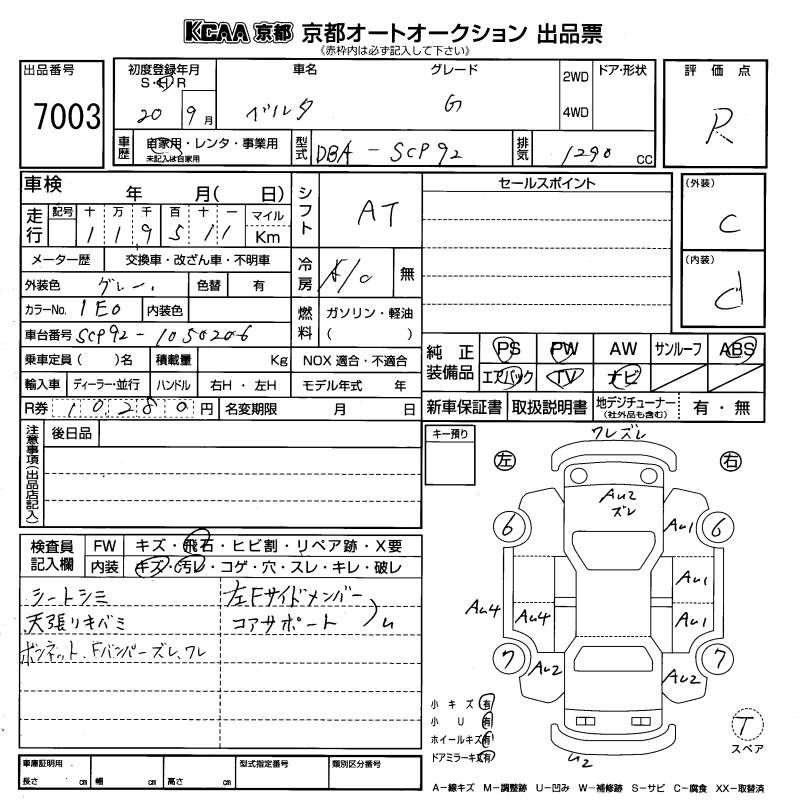 KCAA 京都 京都オートオークション 出品票
《赤枠内は必ず記入して下さい》
出品番号
7003
初度登録年月
S・H・R
20 9月
車名
ベルタ
グレード
G
2WD
4WD
ドア・形状
評価点
R
車歴
自家用・レンタ・事業用
未記入は自家用
型式
DBA-SCP92
排気
1290 CC
車検
年 月( 日)
走行
記号 十 万 千 百 十 一 マイル
1 1 9 5 1 1 Km
シフト
AT
セールスポイント
(外装)
C
(内装)
d
メーター歴
交換車・改ざん車・不明車
冷房
A/C
無
外装色
グレー
色替
有
カラーNo.
1E0
内装色
燃料
ガソリン・軽油
( )
車台番号
SCP92-1050206
乗車定員( )名
積載量
Kg
NOX 適合・不適合
輸入車
ディーラー・並行
ハンドル
右H・左H
モデル年式 年
R券
10280円
名変期限 月 日
純正装備品
PS PW AW サンルーフ ABS
エアバック TV ナビ
新車保証書
取扱説明書
地デジチューナー
(社外品も含む)
有・無
注意事項(出品店記入)
後日品
キー預り
ワレズレ
左
右
AU2
ズレ
6
AU1
6
AU1
AU4
AU4
AU1
7
AU2
AU2
7
U2
検査員記入欄
FW
キズ・飛石・ヒビ割・リペア跡・X要
内装
キズ・汚レ・コゲ・穴・スレ・キレ・破レ
シートシミ
左Fサイドメンバー
天張リキバミ
コアサポート
)U
ボンネット、Fバンパーズレ、ワレ
小キズ 有
小U 有
ホイールキズ 有
ドアミラーキズ 有
T
スペア
車庫証明用
長さ cm 幅 cm 高さ cm
型式指定番号
類別区分番号
A−線キズ M−調整跡 U−凹み W−補修跡 S−サビ C−腐食 XX−取替済